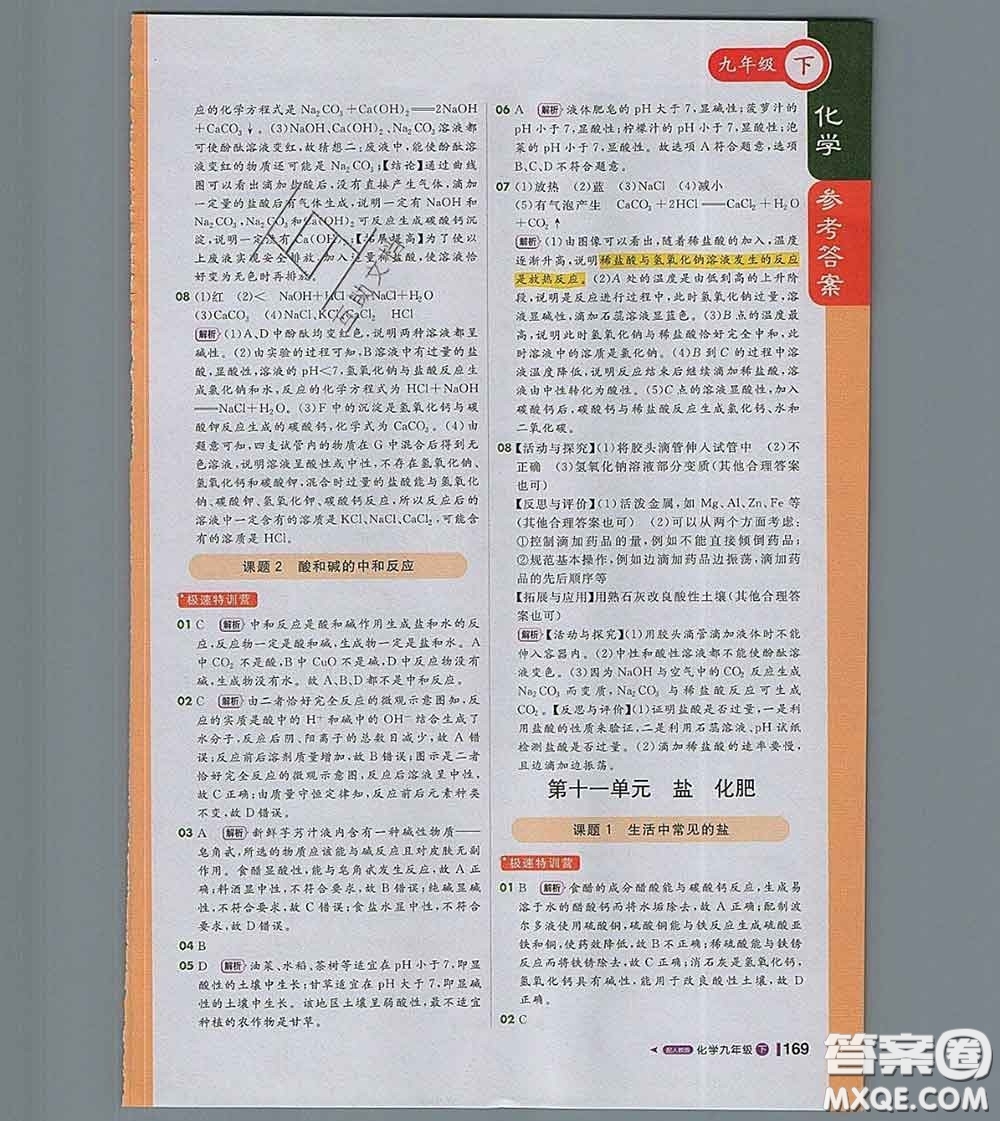 九年级 下
化学
参考答案
应的化学方程式是 Na₂CO₃+Ca(OH)₂══2NaOH
+CaCO₃↓。(3)NaOH、Ca(OH)₂、Na₂CO₃ 溶液都
可使酚酞溶液变红,故猜想二:废液中,能使酚酞溶
液变红的物质还可能是 Na₂CO₃;【结论】通过曲线
图可以看出滴加盐酸后,没有直接产生气体,滴加
一定量的盐酸后有气体生成,说明一定有 NaOH 和
Na₂CO₃,Na₂CO₃和Ca(OH)₂可反应生成碳酸钙沉
淀,说明一定没有 Ca(OH)₂;【拓展提高】为了使以上
废液实现安全排放,加入适量稀盐酸,使溶液恰
好变为无色时再排放。
08 (1)红 (2)< NaOH+HCl══NaCl+H₂O
(3)CaCO₃ (4)NaCl、KCl、CaCl₂ HCl
解析 (1)A、D中酚酞均变红色,说明两种溶液都呈
碱性。(2)由实验的过程可知,B溶液中有过量的盐
酸,显酸性,溶液的 pH<7,氢氧化钠与盐酸反应生
成氯化钠和水,反应的化学方程式为 HCl+NaOH
══NaCl+H₂O。(3)F 中的沉淀是氢氧化钙与碳
酸钾反应生成的碳酸钙,化学式为 CaCO₃。(4)由
题意可知,四支试管内的物质在 G 中混合后得到无
色溶液,说明溶液呈酸性或中性,不存在氢氧化钠、
氢氧化钙和碳酸钾,混合时过量盐酸能与氢氧化
钠、碳酸钾、氢氧化钾、碳酸钙反应,所以反应后的
溶液中一定含有的溶质是 KCl、NaCl、CaCl₂,可能含
有的溶质是 HCl。
课题2 酸和碱的中和反应
极速特训营
01 C 解析 中和反应是酸和碱作用生成盐和水的反
应,反应物一定是酸和碱,生成物一定是盐和水。A
中 CO₂ 不是酸,B 中 CuO 不是碱,D 中生成物没有
碱,生成物没有水。故 A、B、D 都不是中和反应。
02 C 解析 由二者恰好完全反应的微观示意图知,反
应的实质是酸中的 H⁺ 和碱中的 OH⁻ 结合生成了
水分子,反应后阴、阳离子的总数目减少,故 A 错
误;反应前后溶剂质量增加,故 B 错误;图示是二者
恰好完全反应的微观示意图,反应后溶液呈中性,
故 C 正确;由质量守恒定律知,反应前后元素种类
不变,故 D 错误。
03 A 解析 新鲜芋艿汁液内含有一种碱性物质——
皂角甙,所选的物质应该能与碱反应且对皮肤无副
作用。食醋显酸性,能与皂角甙发生反应,故 A 正
确;料酒显中性,不符合要求,故 B 错误;纯碱显碱
性,不符合要求,故 C 错误;食盐水显中性,不符合要
求,故 D 错误。
04 B
05 D 解析 油菜、水稻、茶树等适宜在 pH 小于 7,即显
酸性的土壤中生长;甘草适宜在 pH 大于 7,即显碱
性的土壤中生长。该地区土壤呈弱酸性,最不适宜
种植的农作物是甘草。
06 A 解析 液体肥皂的 pH 大于 7,显碱性;菠萝汁的
pH 小于 7,显酸性;柠檬汁的 pH 小于 7,显酸性;泡
菜的 pH 小于 7,显酸性。故选项 A 符合题意,选项
B、C、D 不符合题意。
07 (1)放热 (2)蓝 (3)NaCl (4)减小
(5)有气泡产生 CaCO₃+2HCl══CaCl₂+H₂O
+CO₂↑
解析 (1)由图像可以看出,随着稀盐酸的加入,温度
逐渐升高,说明稀盐酸与氢氧化钠溶液发生的反应
是放热反应。(2)A 处的温度是由低到高的上升阶
段,说明是反应进行过程中,此时氢氧化钠过量,溶
液显碱性,滴加石蕊溶液显蓝色。(3)B 点的温度最
高,说明此时氢氧化钠与稀盐酸恰好完全中和,此
时溶液中的溶质是氯化钠。(4)B 到 C 的过程中溶
液温度降低,说明反应结束后继续滴加稀盐酸,溶
液由中性转化为酸性。(5)C 点的溶液显酸性,加入
碳酸钙后,碳酸钙与稀盐酸反应生成氯化钙、水和
二氧化碳。
08【活动与探究】(1)将胶头滴管伸入试管中 (2)不
正确 (3)氢氧化钠溶液部分变质(其他合理答案
也可)
【反思与评价】(1)活泼金属,如 Mg、Al、Zn、Fe 等
(其他合理答案也可) (2)可以从两个方面考虑:
①控制滴加药品的量,例如不能直接倾倒药品;
②规范基本操作,例如边滴加边振荡,滴加药
品的先后顺序等
【拓展与应用】用熟石灰改良酸性土壤(其他合理答
案也可)
解析【活动与探究】(1)用胶头滴管滴加液体时不能
伸入容器内。(2)中性和酸性溶液都不能使酚酞溶
液变色。(3)因为 NaOH 与空气中的 CO₂ 反应生成
Na₂CO₃ 而变质,Na₂CO₃ 与稀盐酸反应可生成
CO₂。【反思与评价】(1)证明盐酸是否过量,一是利
用盐酸的性质来验证,二是利用石蕊溶液、pH 试纸
检测盐酸是否过量。(2)滴加稀盐酸的速率要慢,
且边滴加边振荡。
第十一单元 盐 化肥
课题1 生活中常见的盐
极速特训营
01 B 解析 食醋的成分醋酸能与碳酸钙反应,生成易
溶于水的醋酸钙而将水垢除去,故 A 正确;配制波
尔多液使用硫酸铜,硫酸铜能与铁反应生成硫酸亚
铁和铜,使药效降低,故 B 不正确;稀硫酸能与铁锈
反应而将铁锈除去,故 C 正确;消石灰是氢氧化钙,
氢氧化钙具有碱性,能用于改良酸性土壤,故 D
正确。
02 C
配人教版 化学九年级 下 169
答案圈
MXQE.COM